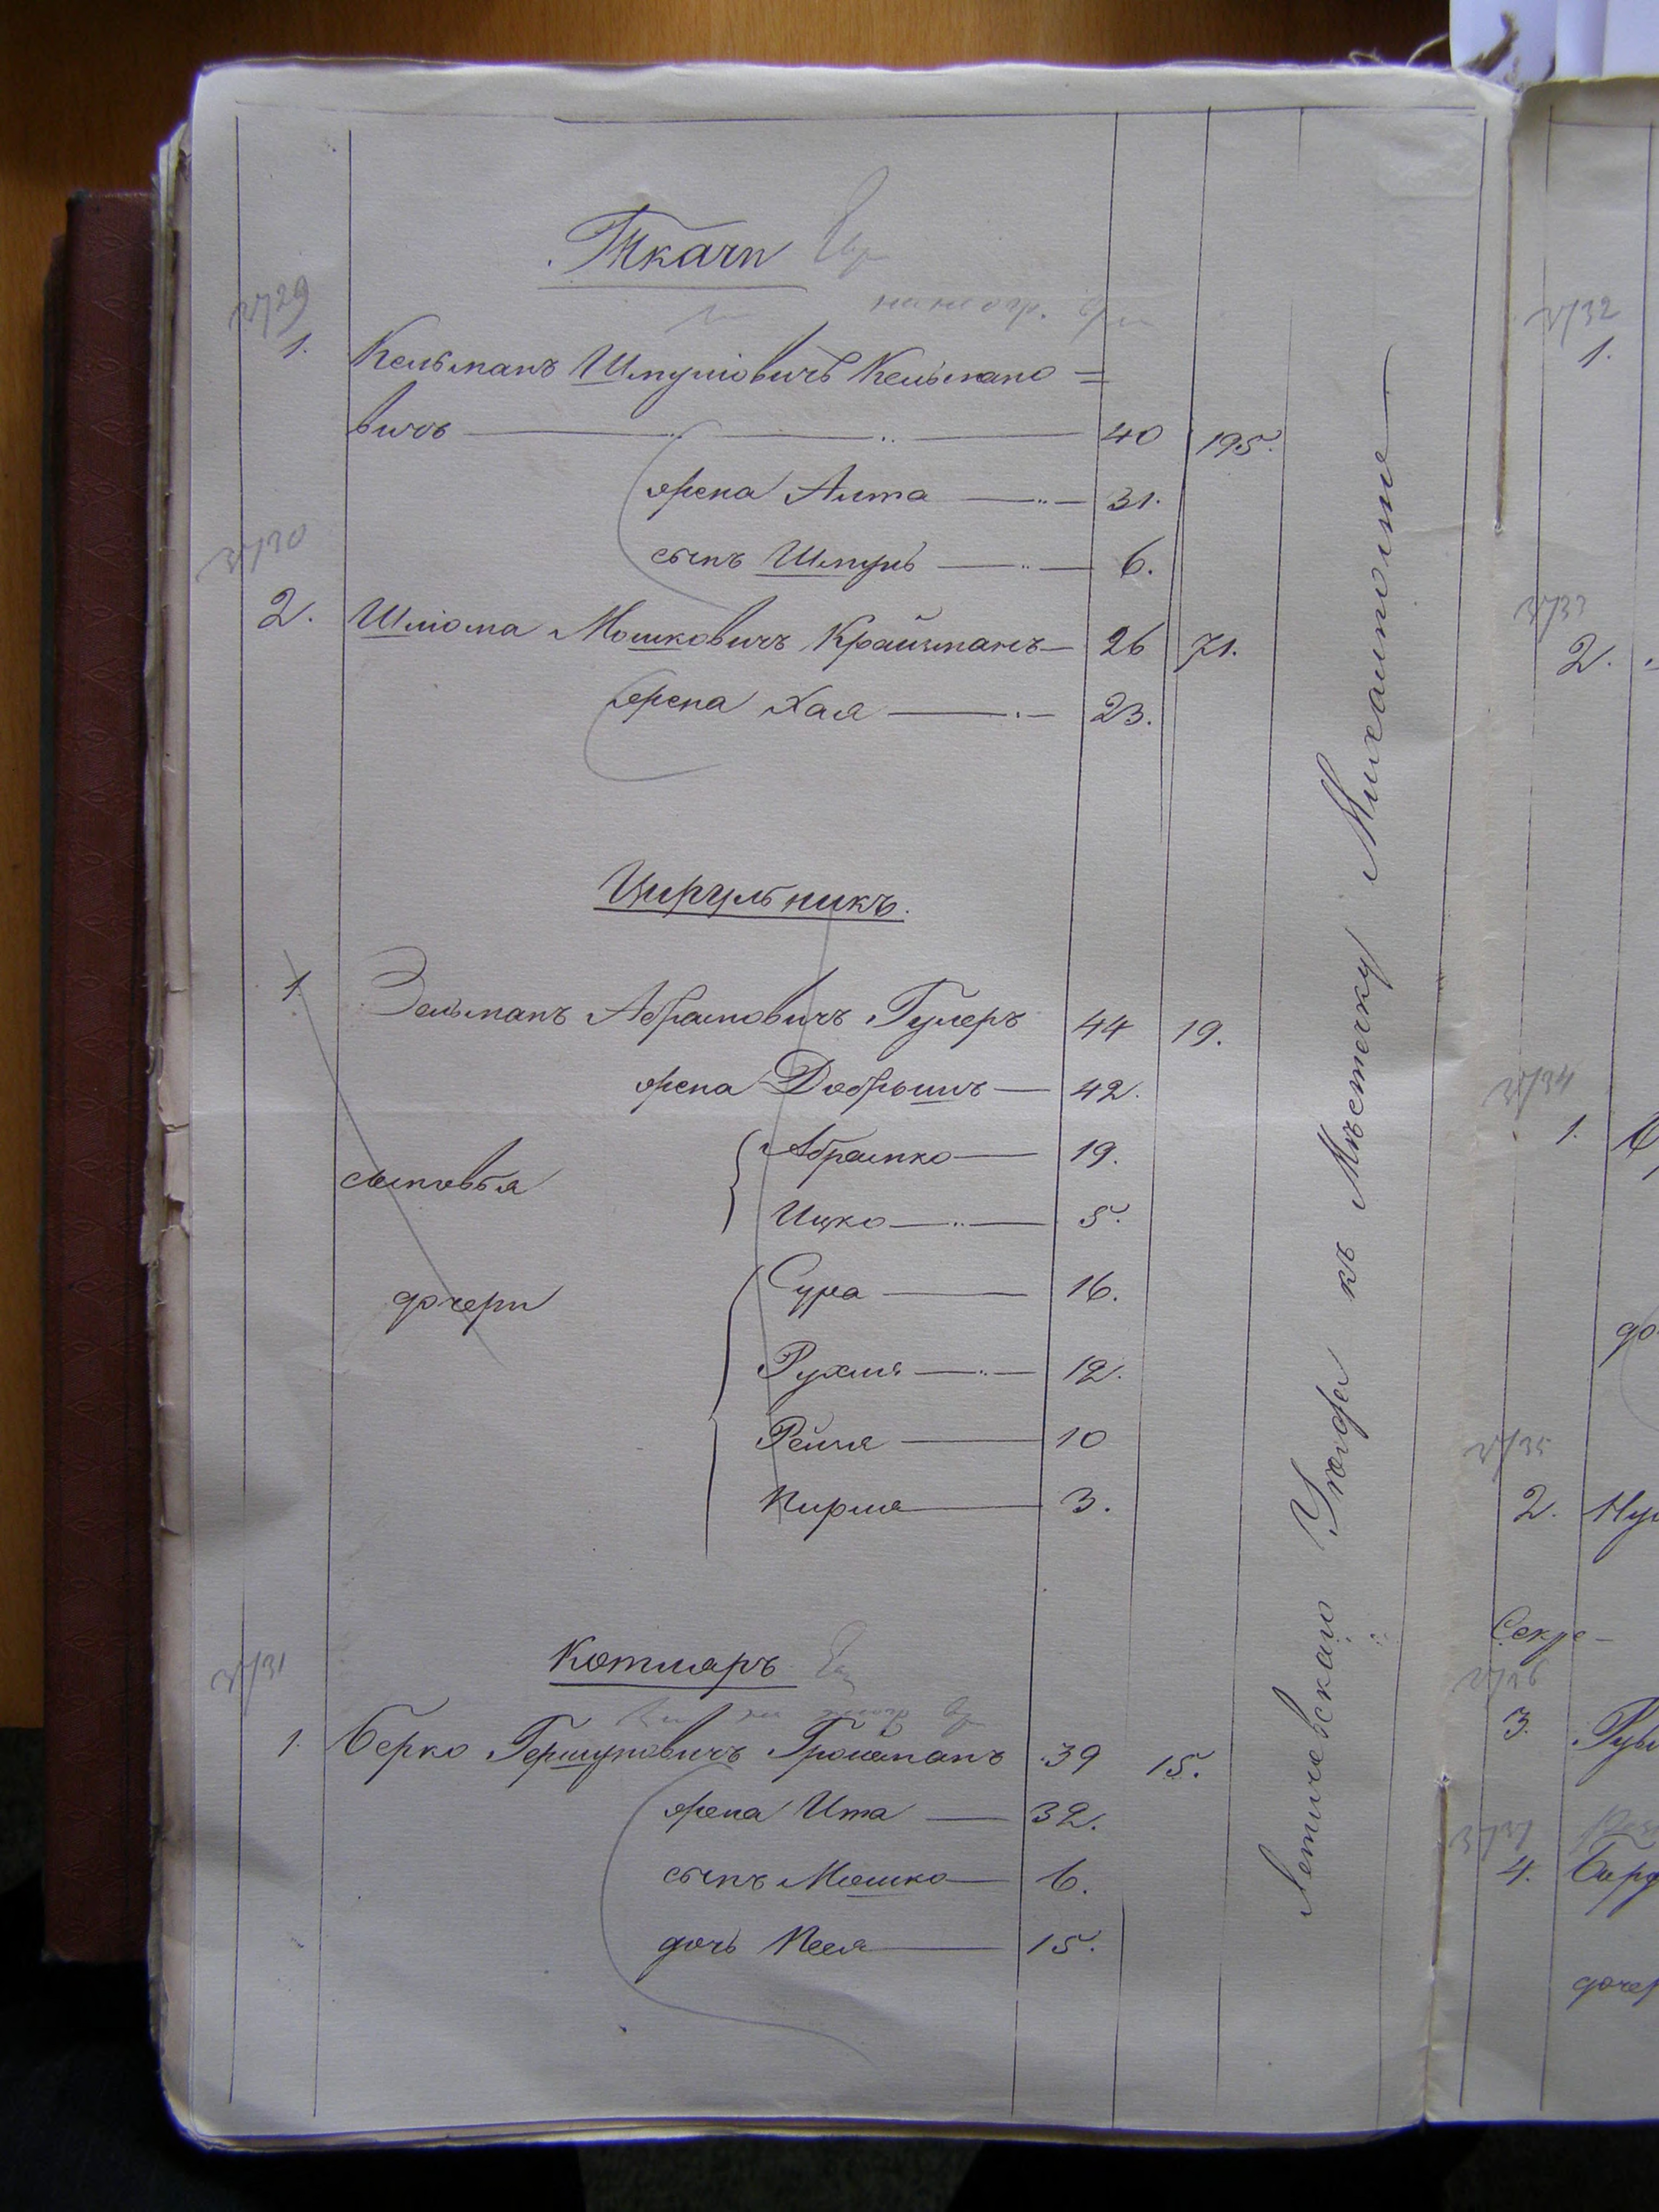 Ткачи
3729
1. Кельманъ Шмуліовичъ Кельмано=
вичъ 40 195.
жена Алта 31.
сынъ Шмуль 6.
3730
2. Шліома Мошковичъ Крайзманъ 26 71.
жена Хая 23.
Цирульникъ.
1. Зельманъ Абрамовичъ Гулеръ 44 19.
жена Добрышъ 42.
сыновья
Абрамко 19.
Ицко 5.
дочери
Сура 16.
Рухля 12.
Рейзя 10
3.
Котляръ
3731
1. Берко Гершуновичъ Гройсманъ 39 15.
жена Ита 32.
сынъ Мошко 6.
дочь 15.
Летичевскаго Уѣзда къ Мѣстечку Михалполю
3732
1.
3733
2.
3734
1.
до
3735
2.
Секре-
3736
3.
4.
дочер